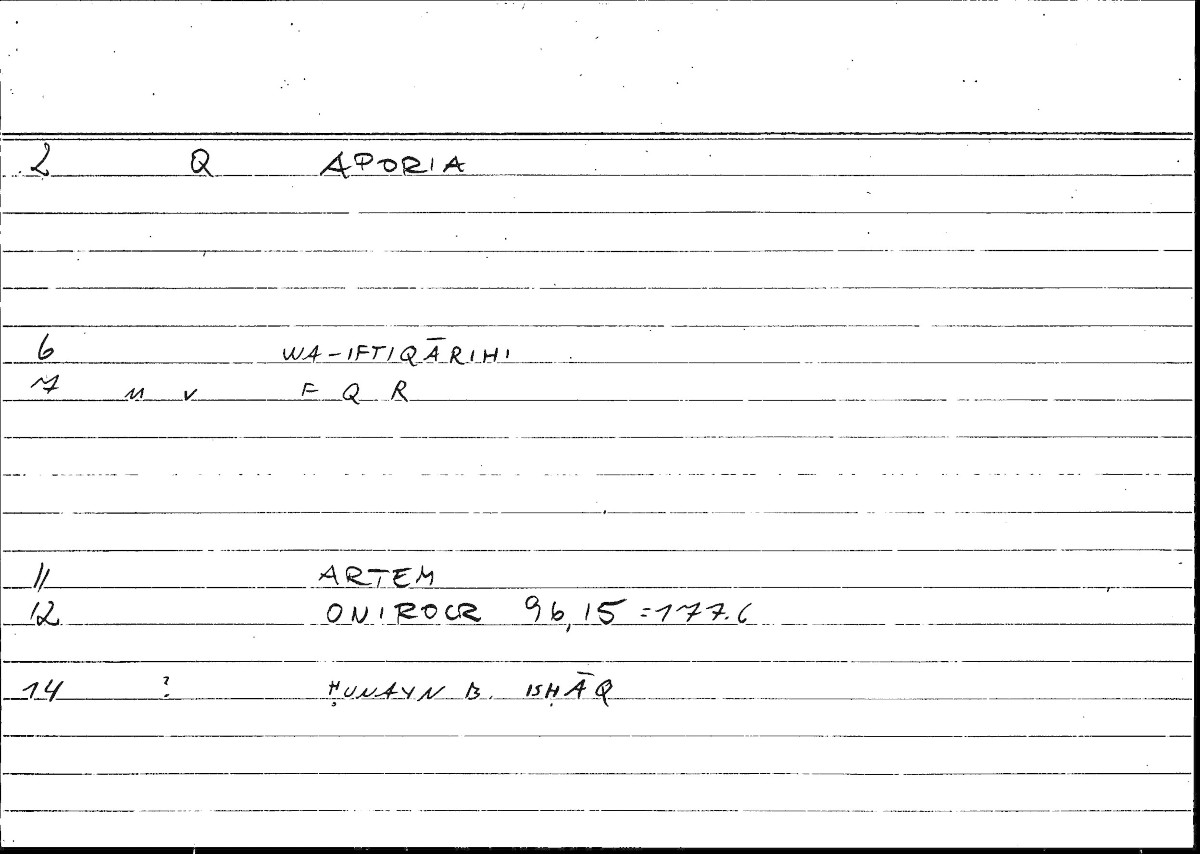 2 Q APORIA
6 WA-IFTIQĀRIHI
7 M V F Q R
11 ARTEM
12 ONIROCR 96,15 =177.6
14 ? ḤUNAYN B. ISḤĀQ